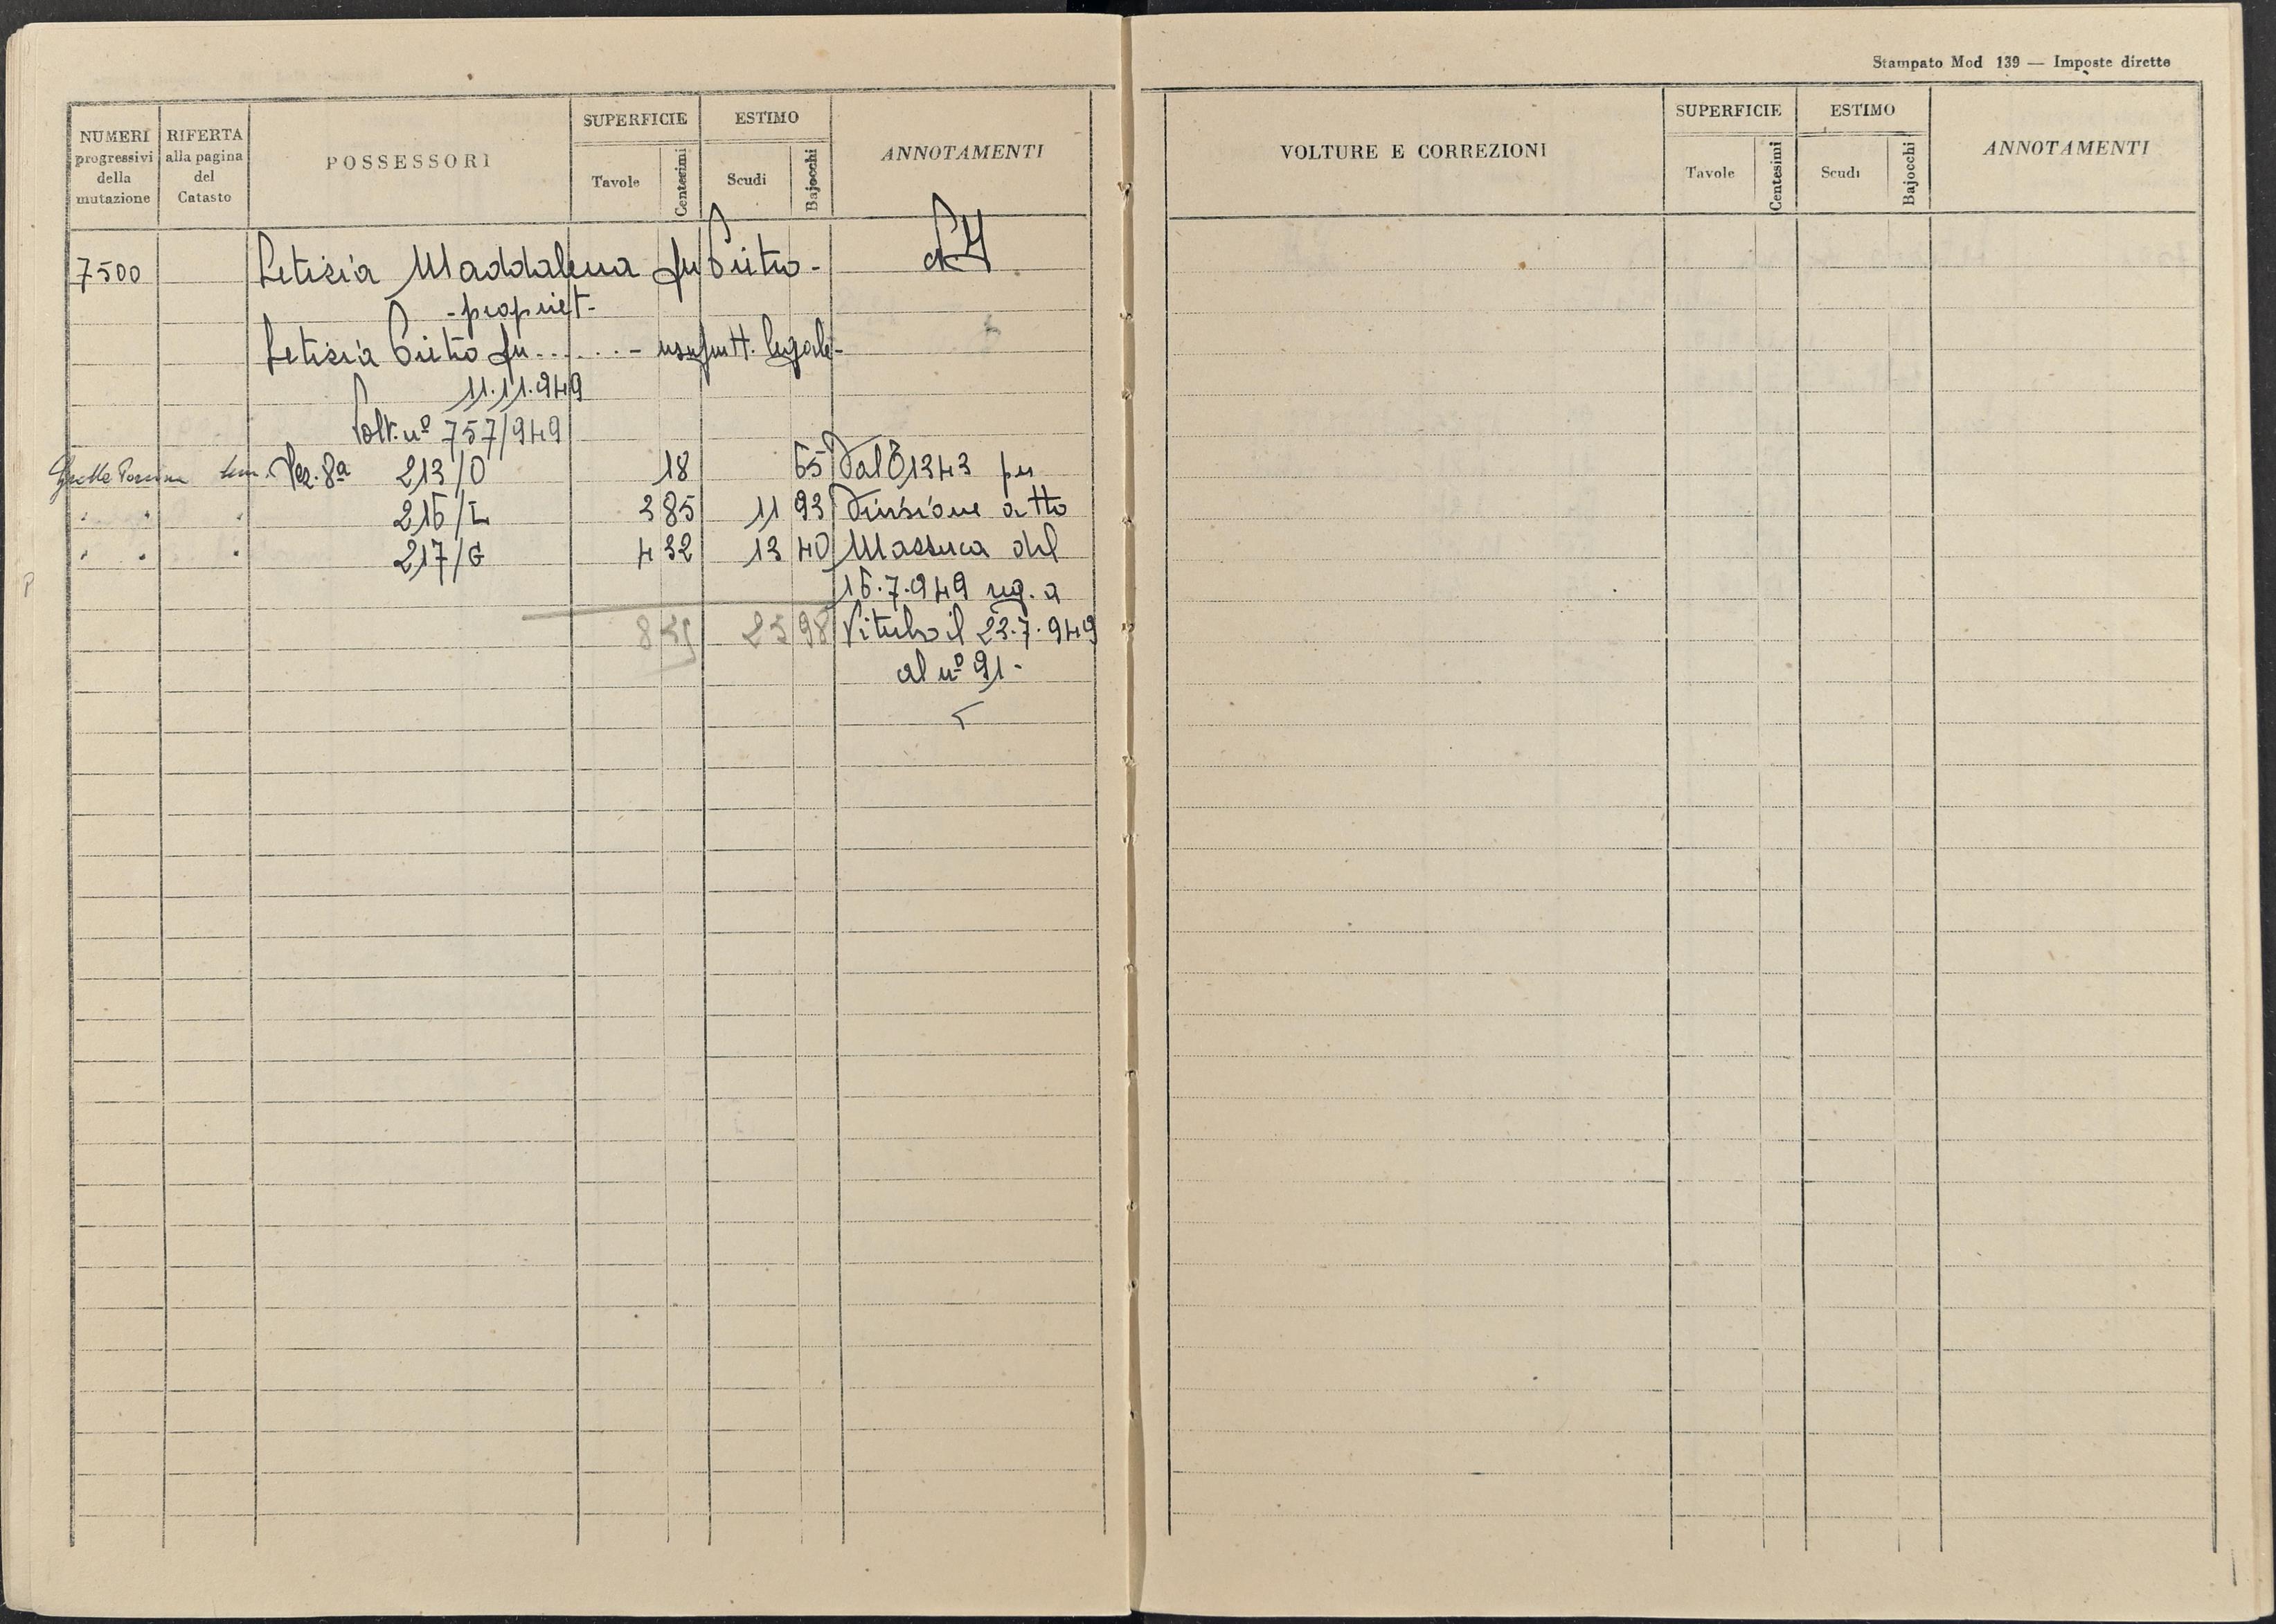 Stampato Mod 139 — Imposte dirette
NUMERI progressivi della mutazione
RIFERTA alla pagina del Catasto
POSSESSORI
SUPERFICIE
Tavole
Centesimi
ESTIMO
Scudi
Bajocchi
ANNOTAMENTI
7500 Letizia Maddalena fu Pietro -
- propriet -
Letizia Pietro fu ...... - usufrutt. legale -
11.11.949
Volt. nº 757/949
Grotte Sez. 8ª 213/O 18 65 Dal 1343 per
" " " 216/L 3 85 11 93 Divisione atto
" " " 217/G 4 32 13 40 Massera del
16.7.949 reg. a
8 35 25 98 Viterbo il 23.7.949
al nº 91 -
VOLTURE E CORREZIONI
SUPERFICIE
Tavole
Centesimi
ESTIMO
Scudi
Bajocchi
ANNOTAMENTI